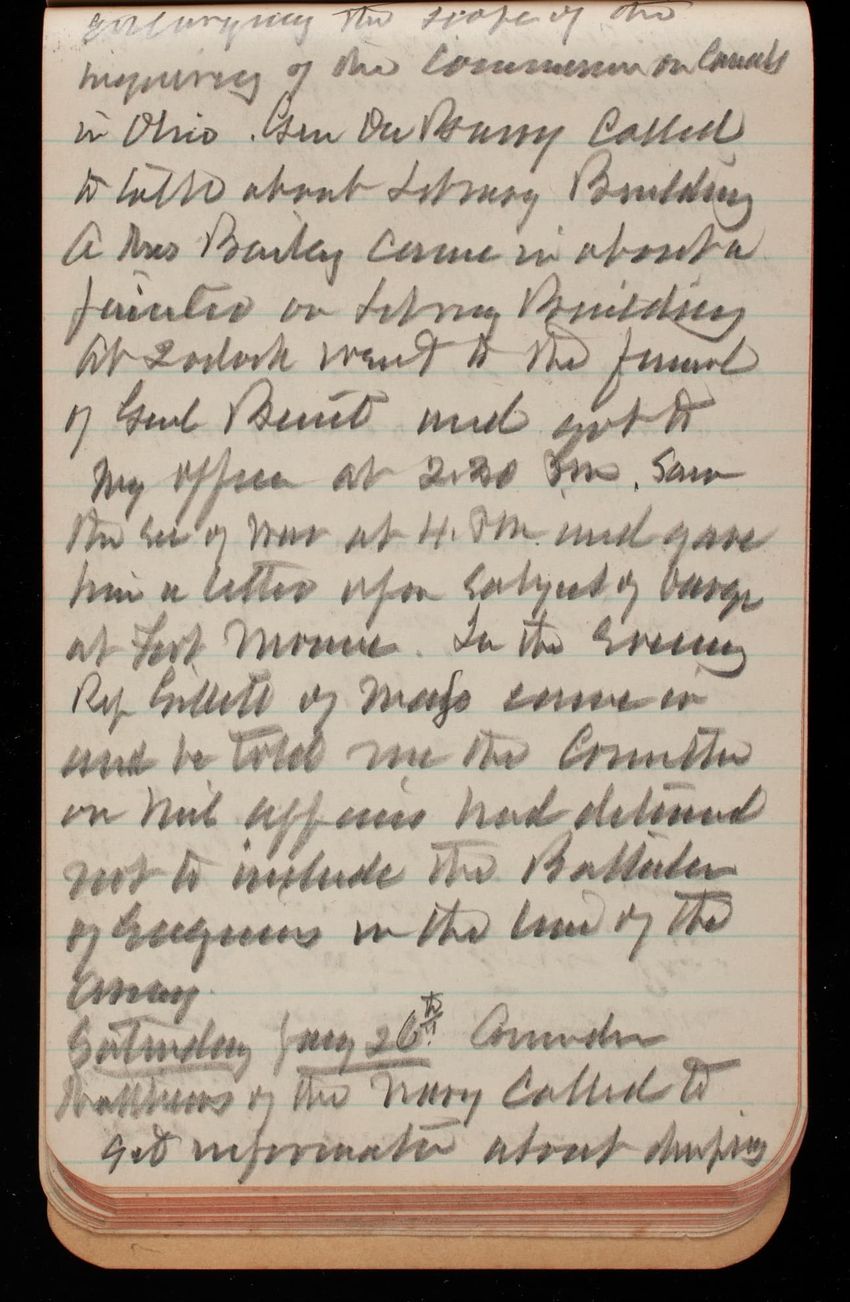 enlarging the scope of the
inquiries of the Commission on Canals
in Ohio. Gen Du Barry Called
to talk about Library Building
A Mrs Bailey came in about a
painter on Library Building
At 2 oclock went to the funeral
of Genl Benet and got to
my office at 2.20 P.m. Saw
the Sec of War at 4. P.M. and gave
him a letter upon subject of barge
at Fort Monroe. In the Evening
Rep Gillett of Mass came in
and he told me the Committee
on Mil affairs had determd
not to include the Battalion
of Engineers in the line of the
Army.
Saturday Jany 26th Commodore
Matthews of the Navy Called to
get information about dumping